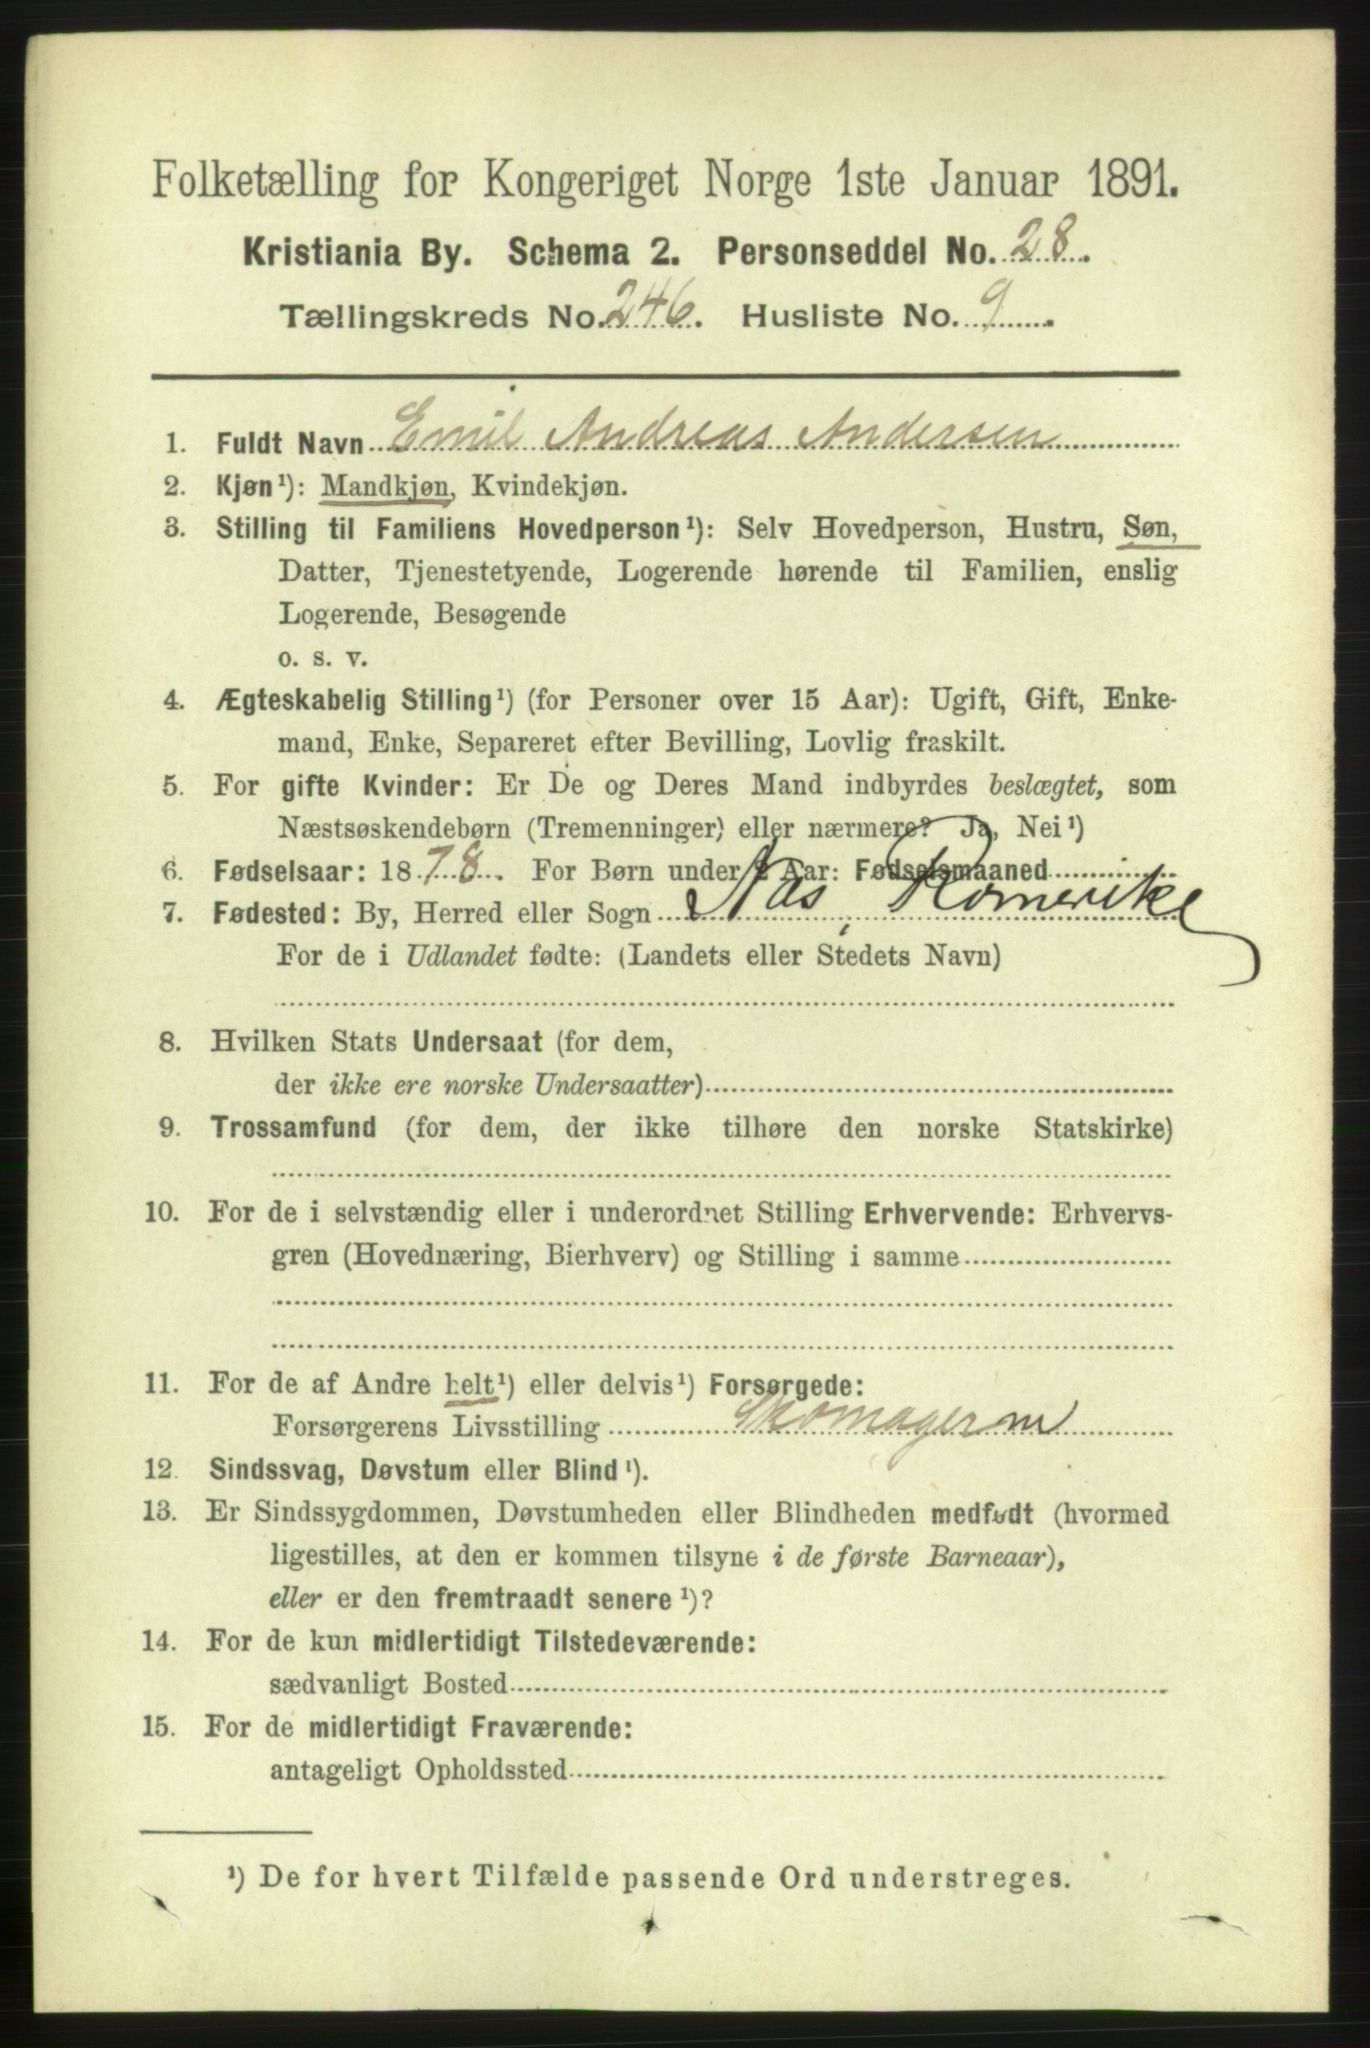 Folketælling for Kongeriget Norge 1ste Januar 1891.
Kristiania By. Schema 2. Personseddel No. 28.
Tællingskreds No. 246. Husliste No. 9.
1. Fuldt Navn Emil Andreas Andersen
2. Kjøn¹): Mandkjøn, Kvindekjøn.
3. Stilling til Familiens Hovedperson¹): Selv Hovedperson, Hustru, Søn,
Datter, Tjenestetyende, Logerende hørende til Familien, enslig
Logerende, Besøgende
o. s. v.
4. Ægteskabelig Stilling¹) (for Personer over 15 Aar): Ugift, Gift, Enke-
mand, Enke, Separeret efter Bevilling, Lovlig fraskilt.
5. For gifte Kvinder: Er De og Deres Mand indbyrdes beslægtet, som
Næstsøskendebørn (Tremenninger) eller nærmere? Ja, Nei¹)
6. Fødselsaar: 1878. For Børn under 2 Aar: Fødselsmaaned
7. Fødested: By, Herred eller Sogn Næs, Romerike
For de i Udlandet fødte: (Landets eller Stedets Navn)
8. Hvilken Stats Undersaat (for dem,
der ikke ere norske Undersaatter)
9. Trossamfund (for dem, der ikke tilhøre den norske Statskirke)
10. For de i selvstændig eller i underordnet Stilling Erhvervende: Erhvervs-
gren (Hovednæring, Bierhverv) og Stilling i samme
11. For de af Andre helt¹) eller delvis¹) Forsørgede:
Forsørgerens Livsstilling Skomagerm
12. Sindssvag, Døvstum eller Blind¹).
13. Er Sindssygdommen, Døvstumheden eller Blindheden medfødt (hvormed
ligestilles, at den er kommen tilsyne i de første Barneaar),
eller er den fremtraadt senere¹)?
14. For de kun midlertidigt Tilstedeværende:
sædvanligt Bosted
15. For de midlertidigt Fraværende:
antageligt Opholdssted
¹) De for hvert Tilfælde passende Ord understreges.